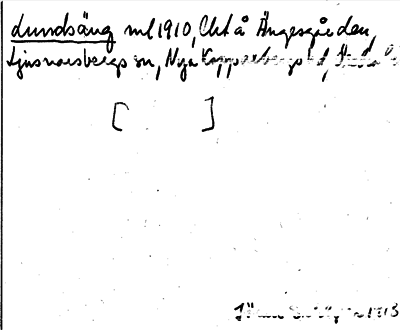 Lundsäng ml 1910, Cht å Ängesgården,
Ljusnarsbergs sn, Nya Kopparbergs hd,
[ ]
1913